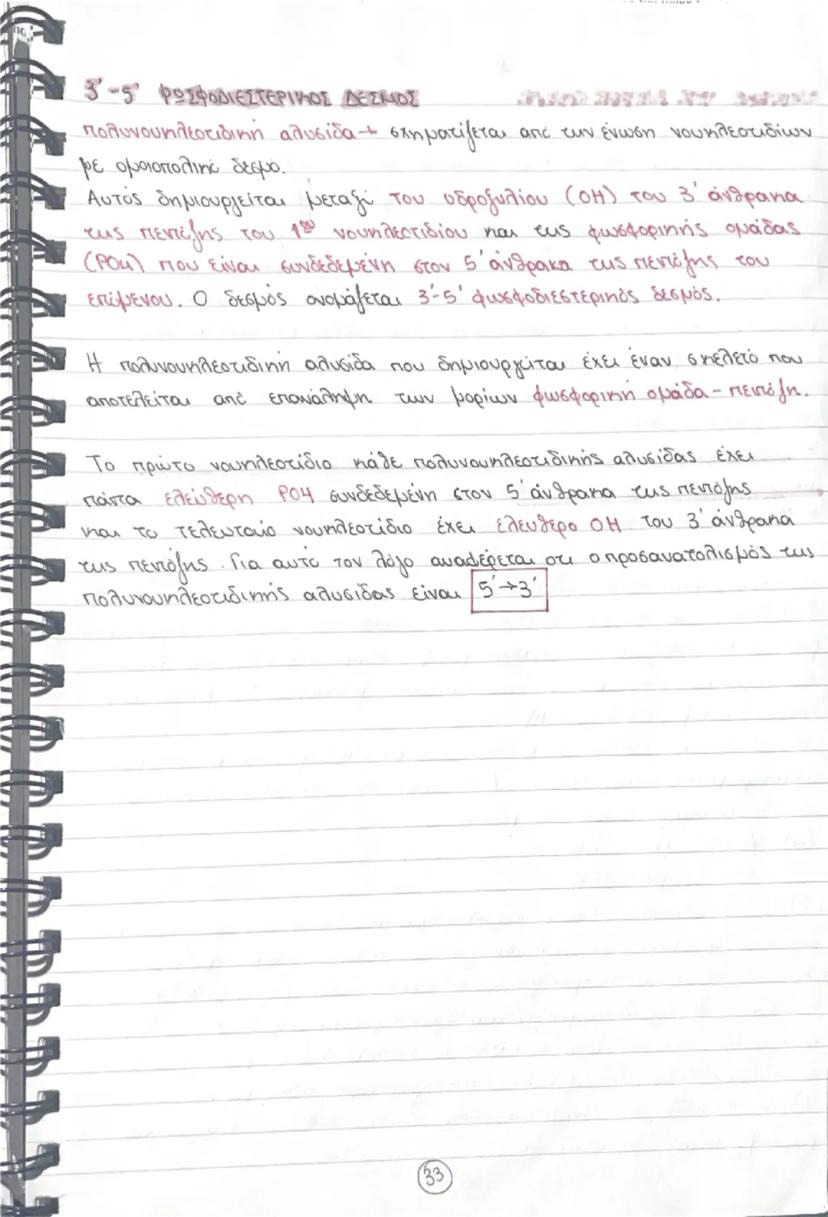 3'-5' ΦΩΣΦΟΔΙΕΣΤΕΡΙΚΟΣ ΔΕΣΜΟΣ
πολυνουκλεοτιδική αλυσίδα → σχηματίζεται από την ένωση νουκλεοτιδίων
με ομοιοπολικό δεσμο.
Αυτός δημιουργείται μεταξύ του υδροξυλίου (ΟΗ) του 3' άνθρακα
της πεντόζης του 1ου νουκλεοτιδίου και της φωσφορικής ομάδας
(PO4) που είναι συνδεδεμένη στον 5' άνθρακα της πεντόζης του
επόμενου. Ο δεσμός ονομάζεται 3'-5' φωσφοδιεστερικός δεσμός.
Η πολυνουκλεοτιδική αλυσίδα που δημιουργείται έχει έναν σκελετό που
αποτελείται από επανάληψη των μορίων φωσφορική ομάδα - πεντόζη.
Το πρώτο νουκλεοτίδιο κάθε πολυνουκλεοτιδικής αλυσίδας έχει
πάντα ελεύθερη PO4 συνδεδεμένη στον 5' άνθρακα της πεντόζης
και το τελευταίο νουκλεοτίδιο έχει ελευθερο ΟΗ του 3' άνθρακα
της πεντόζης. Για αυτό τον λόγο αναφέρεται οτι ο προσανατολισμός της
πολυνουκλεοτιδικής αλυσίδας είναι 5'→3'
33